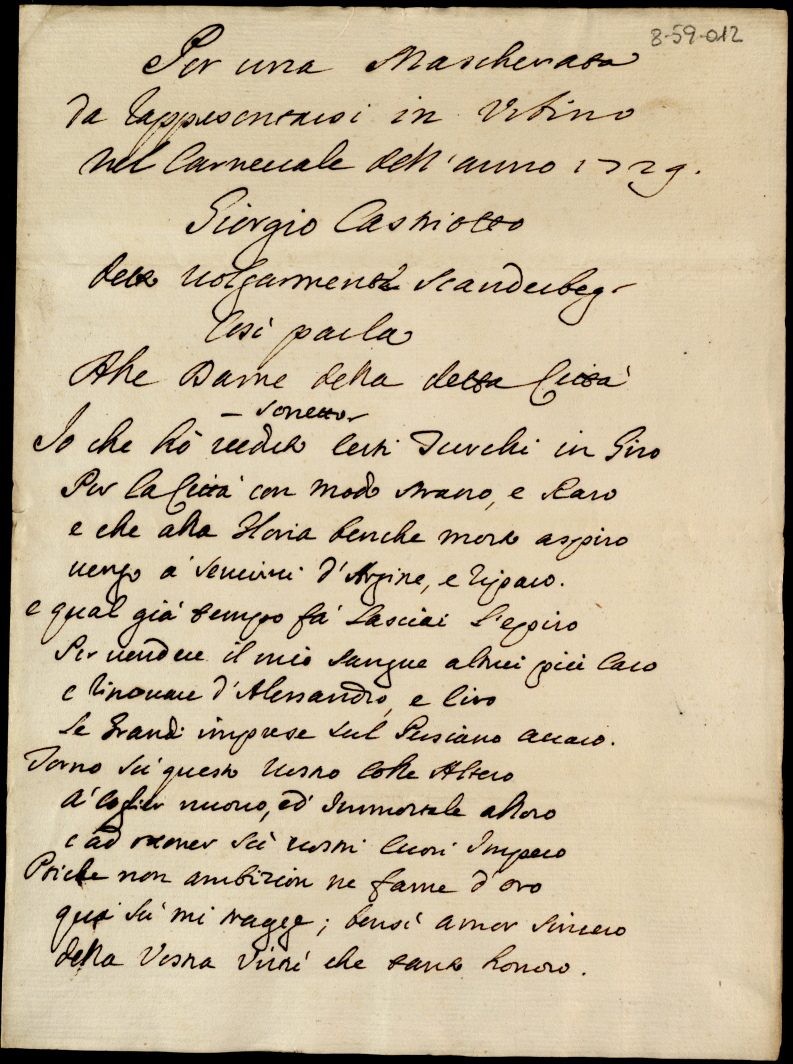 8-59-012
Per una Mascherata
da rappresentarsi in Urbino
nel Carneuale dell'anno 1729.
Giorgio Castriotto
detto uolgarmente Scanderbeg
Così parla
Alle Dame della detta Città
- Sonetto -
Io che hò ueduto certi Turchi in Giro
Per la Città con modo strano, e Raro
e che alla Gloria benche morto aspiro
uengo a' seruirui d'Argine, e riparo.
e qual già tempo fà lasciai l'epiro
Per uendere il mio sangue altrui più Caro
e rinouare d'Alessandro, e Ciro
le Grandi imprese sul Persiano acciaro.
Torno sù questo uostro Colle Altero
A' Coglier nuouo, ed' Immortale alloro
e ad ottener sù uostri Cuori Impero
Poiche non ambizion ne fame d'oro
quà sù mi tragge; bensì amor sincero
della Vostra Virtù che tanto honoro.